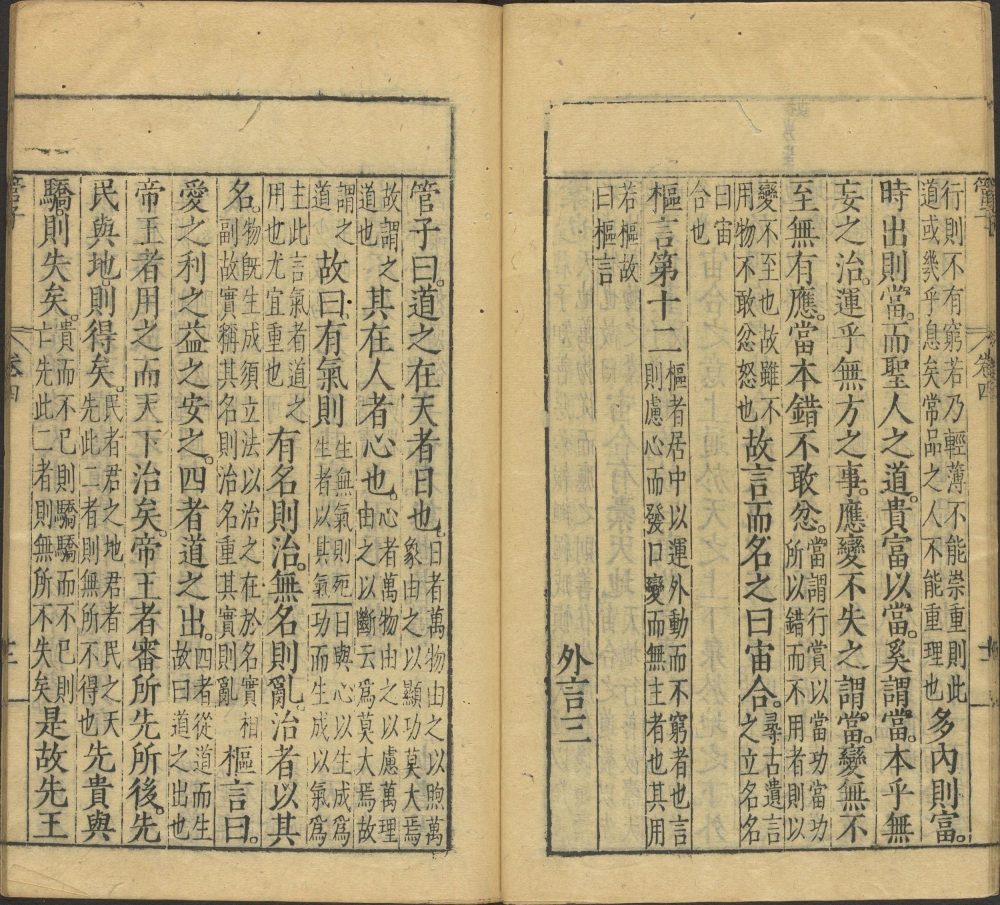 管子
卷四
行則不有窮若乃輕薄不能崇重則此
道或幾乎息矣常品之人不能重理也
多內則富。
時出則當。而聖人之道。貴富以當。奚謂當。本乎無
妄之治。運乎無方之事。應變不失之謂當。變無不
至無有應。當本錯不敢忿。
當謂行賞以當功當功
所以錯而不用者則以
變不至也故雖不
用物不敢忿怒也
故言而名之曰宙合。
尋古遺言
之立名名
曰宙
合也
樞言第十二
樞者居中以運外動而不窮者也言
則慮心而發曰變而無主者也其用
若樞故
曰樞言
外言三
管子曰。道之在天者日也。
日者萬物由之以煦萬
象由之以顯功莫大焉
故謂之
道也
其在人者心也。
心者萬物由之以慮萬理
由之以斷云為莫大焉故
謂之
道
故曰。有氣則
生無氣則死一曰與心以生成為
生者以其氣功而生成以氣為
主此言氣者道之
用也尤宜重也
有名則治。無名則亂。治者以其
名。
物既生成須立法以治之在於名實相
副故實稱其名則治名重其實則亂
樞言曰。
愛之利之益之安之。四者道之出。
四者從道而生
故曰道之出也
帝王者用之而天下治矣。帝王者審所先所後。先
民與地。則得矣。
民者君之地君者民之天
先此二者則無所不得也
先貴與
驕。則失矣。
貴而不已則驕驕而不已則
亡先此二者則無所不失矣
是故先王
管子
卷四